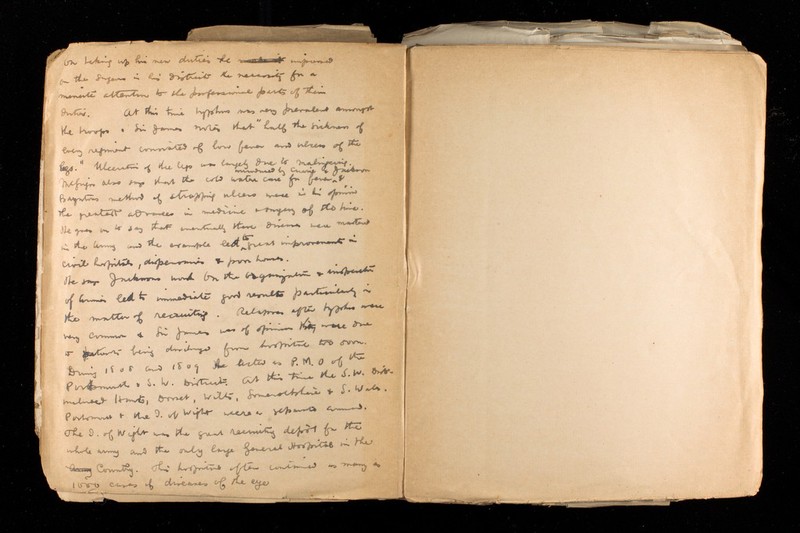 On taking up his new duties he impressed
on the surgeons in his District the necessity for a
minute attention to the professional parts of their
duties. At this time typhus was very prevalent amongst
the troops & Sir James notes that "half the sickness of
every regiment consisted of low fever and ulcers of the
legs." Ulceration of the legs was largely due to malingering.
introduced by Currie & Jackson
McGrigor also says that the cold water cure for fever &
Baynton's method of strapping ulcers were in his opinion
the greatest advances in medicine & surgery of the time.
He goes on to say that eventually these diseases were mastered
in the Army and the example led to great improvements in
civil hospitals, dispensaries & poor houses.
He says Jackson's work On the Organization & inspection
of Armies led to immediate good results particularly in
the matter of recruiting. Relapses after typhus were
very common & Sir James was of opinion they were due
to patients being discharged from hospital too soon.
During 1808 and 1809 he acted as P.M.O of the
Portsmouth & S.W. District. At this time the S.W. Dist.
included Hants, Dorset, Wilts, Somersetshire & S. Wales.
Portsmouth & the I. of Wight were a separate command.
The I. of Wight was the great recruiting depôt for the
whole army and the only large General Hospital in the
Army Country. This hospital often contained as many as
1000 cases of diseases of the eye